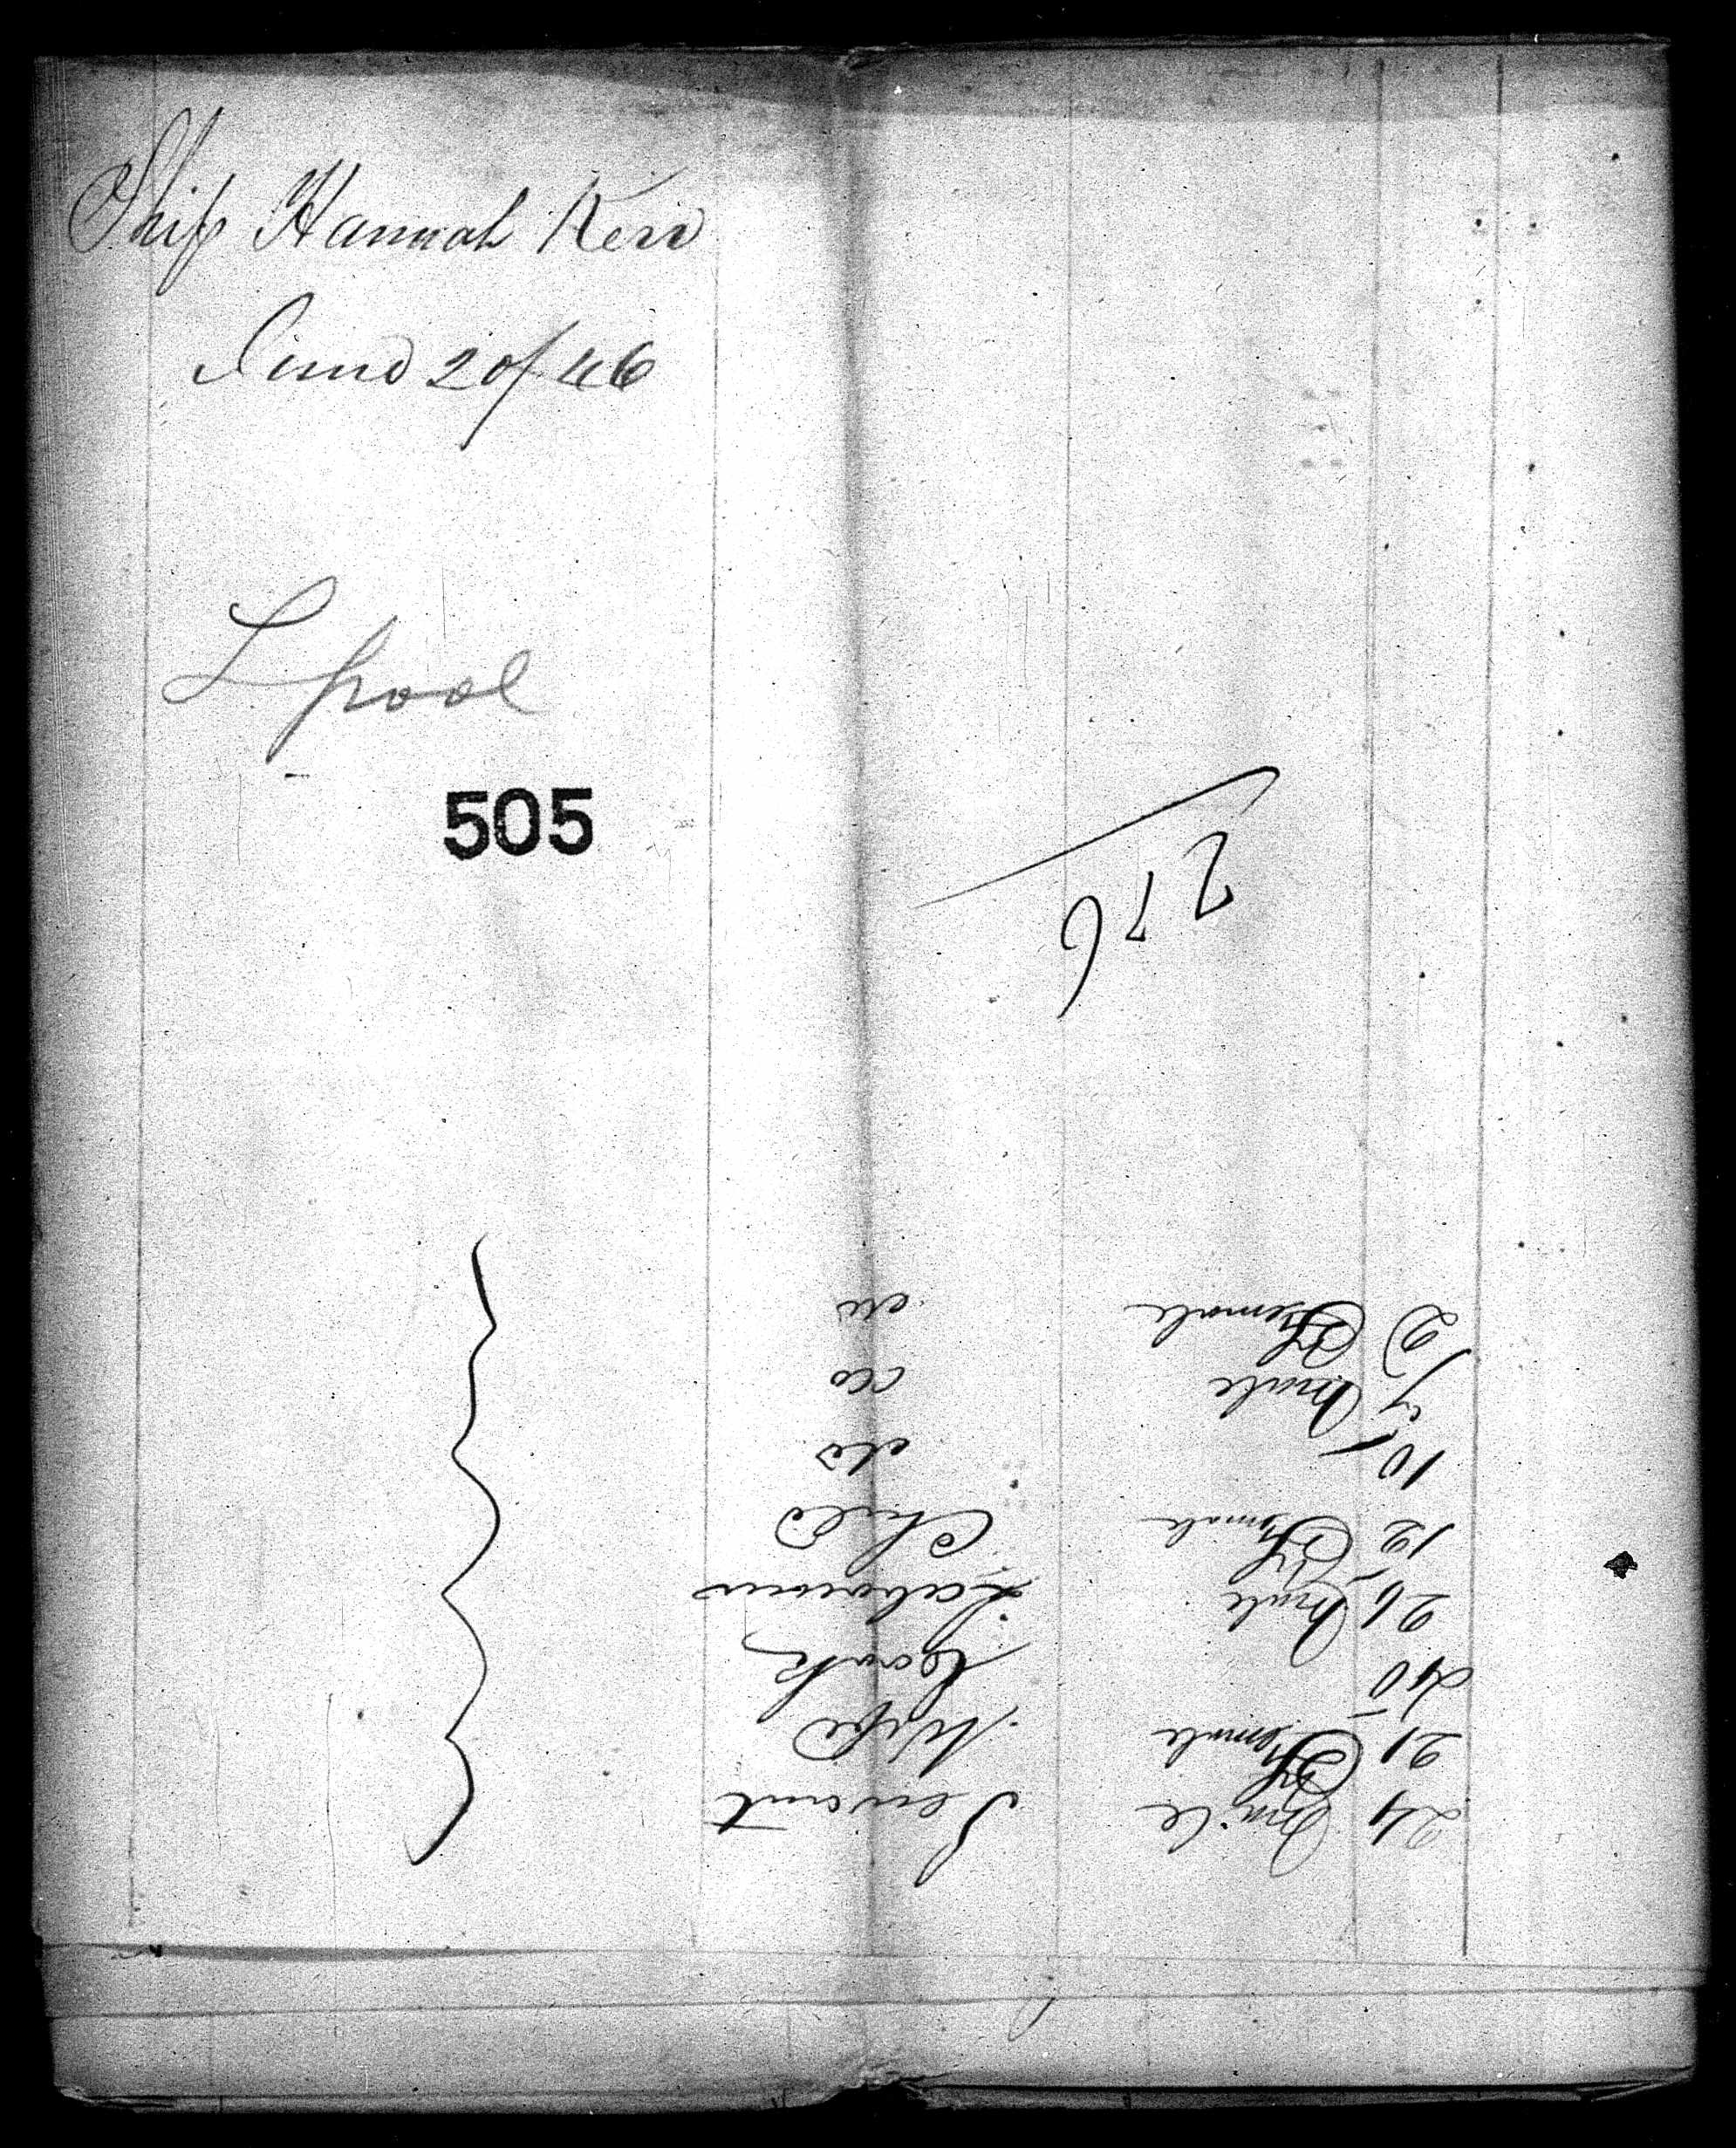 Ship Hannah Kerr
June 20/46
L pool
505
276
24 Male Servant
21 Female Wife
40 Cook
26 Male Labourer
12 Female Child
10 do
4 Male do
2 Female do